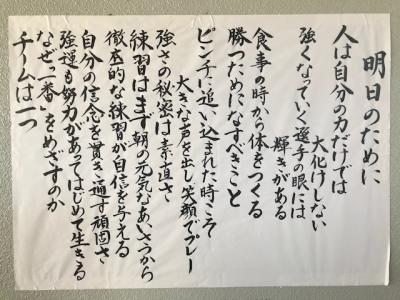 明日のために
人は自分の力だけでは
大化けしない
強くなっていく選手の眼には
輝きがある
食事の時から体をつくる
勝つためになすべきこと
ピンチに追い込まれた時こそ
大きな声を出し笑顔でプレー
強さの秘密は素直さ
練習はまず朝の元気なあいさつから
徹底的な練習が自信を与える
自分の信念を貫き通す頑固さ
強運も努力があってはじめて生きる
なぜ「一番」をめざすのか
チームは一つ